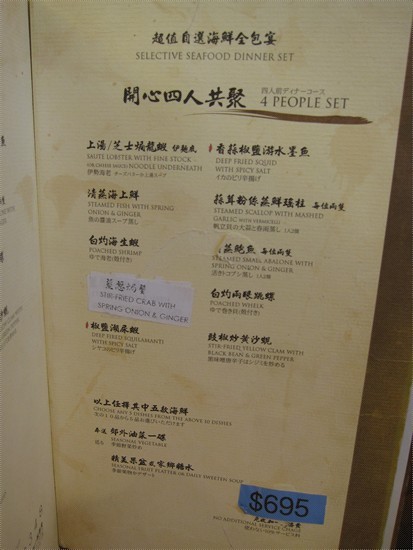 超值自選海鮮全包宴
SELECTIVE SEAFOOD DINNER SET
開心四人共聚
四人前ディナーコース
4 PEOPLE SET
上湯/芝士焗龍蝦 伊麵底
SAUTE LOBSTER WITH FINE STOCK
(OR CHEESE SAUCE) NOODLE UNDERNEATH
清蒸海上鮮
STEAMED FISH WITH SPRING
ONION & GINGER
魚の醤油スープ蒸し
白灼海生蝦
POACHED SHRIMP
ゆで海老(殻付き)
薑葱炒蟹
STIR-FRIED CRAB WITH
SPRING ONION & GINGER
椒鹽瀨尿蝦
DEEP FRIED SQUILAMANTI
WITH SPICY SALT
シヤコのピリ辛揚げ
香蒜椒鹽游水墨魚
DEEP FRIED SQUID
WITH SPICY SALT
イカのピリ辛揚げ
蒜茸粉絲蒸鮮瑤柱 每位兩隻
STEAMED SCALLOP WITH MASHED
GARLIC WITH VERMICELLI
蒸鮑魚 每位兩隻
STEAMED SMALL ABALONE WITH
SPRING ONION & GINGER
白灼兩眼跳螺
POACHED WHELK
ゆで巻き貝(殻付き)
豉椒炒黃沙蜆
STIR-FRIED YELLOW CLAM WITH
BLACK BEAN & GREEN PEPPER
以上任擇其中五款海鮮
CHOOSE ANY 5 DISHES FROM THE ABOVE 10 DISHES
郊外油菜一碟
SEASONAL VEGETABLE
季節野菜炒め
精美果盆或家鄉糖水
SEASONAL FRUIT PLATTER OR DAILY SWEETEN SOUP
季節果物かデザート
$695
NO ADDITIONAL SERVICE CHARGE